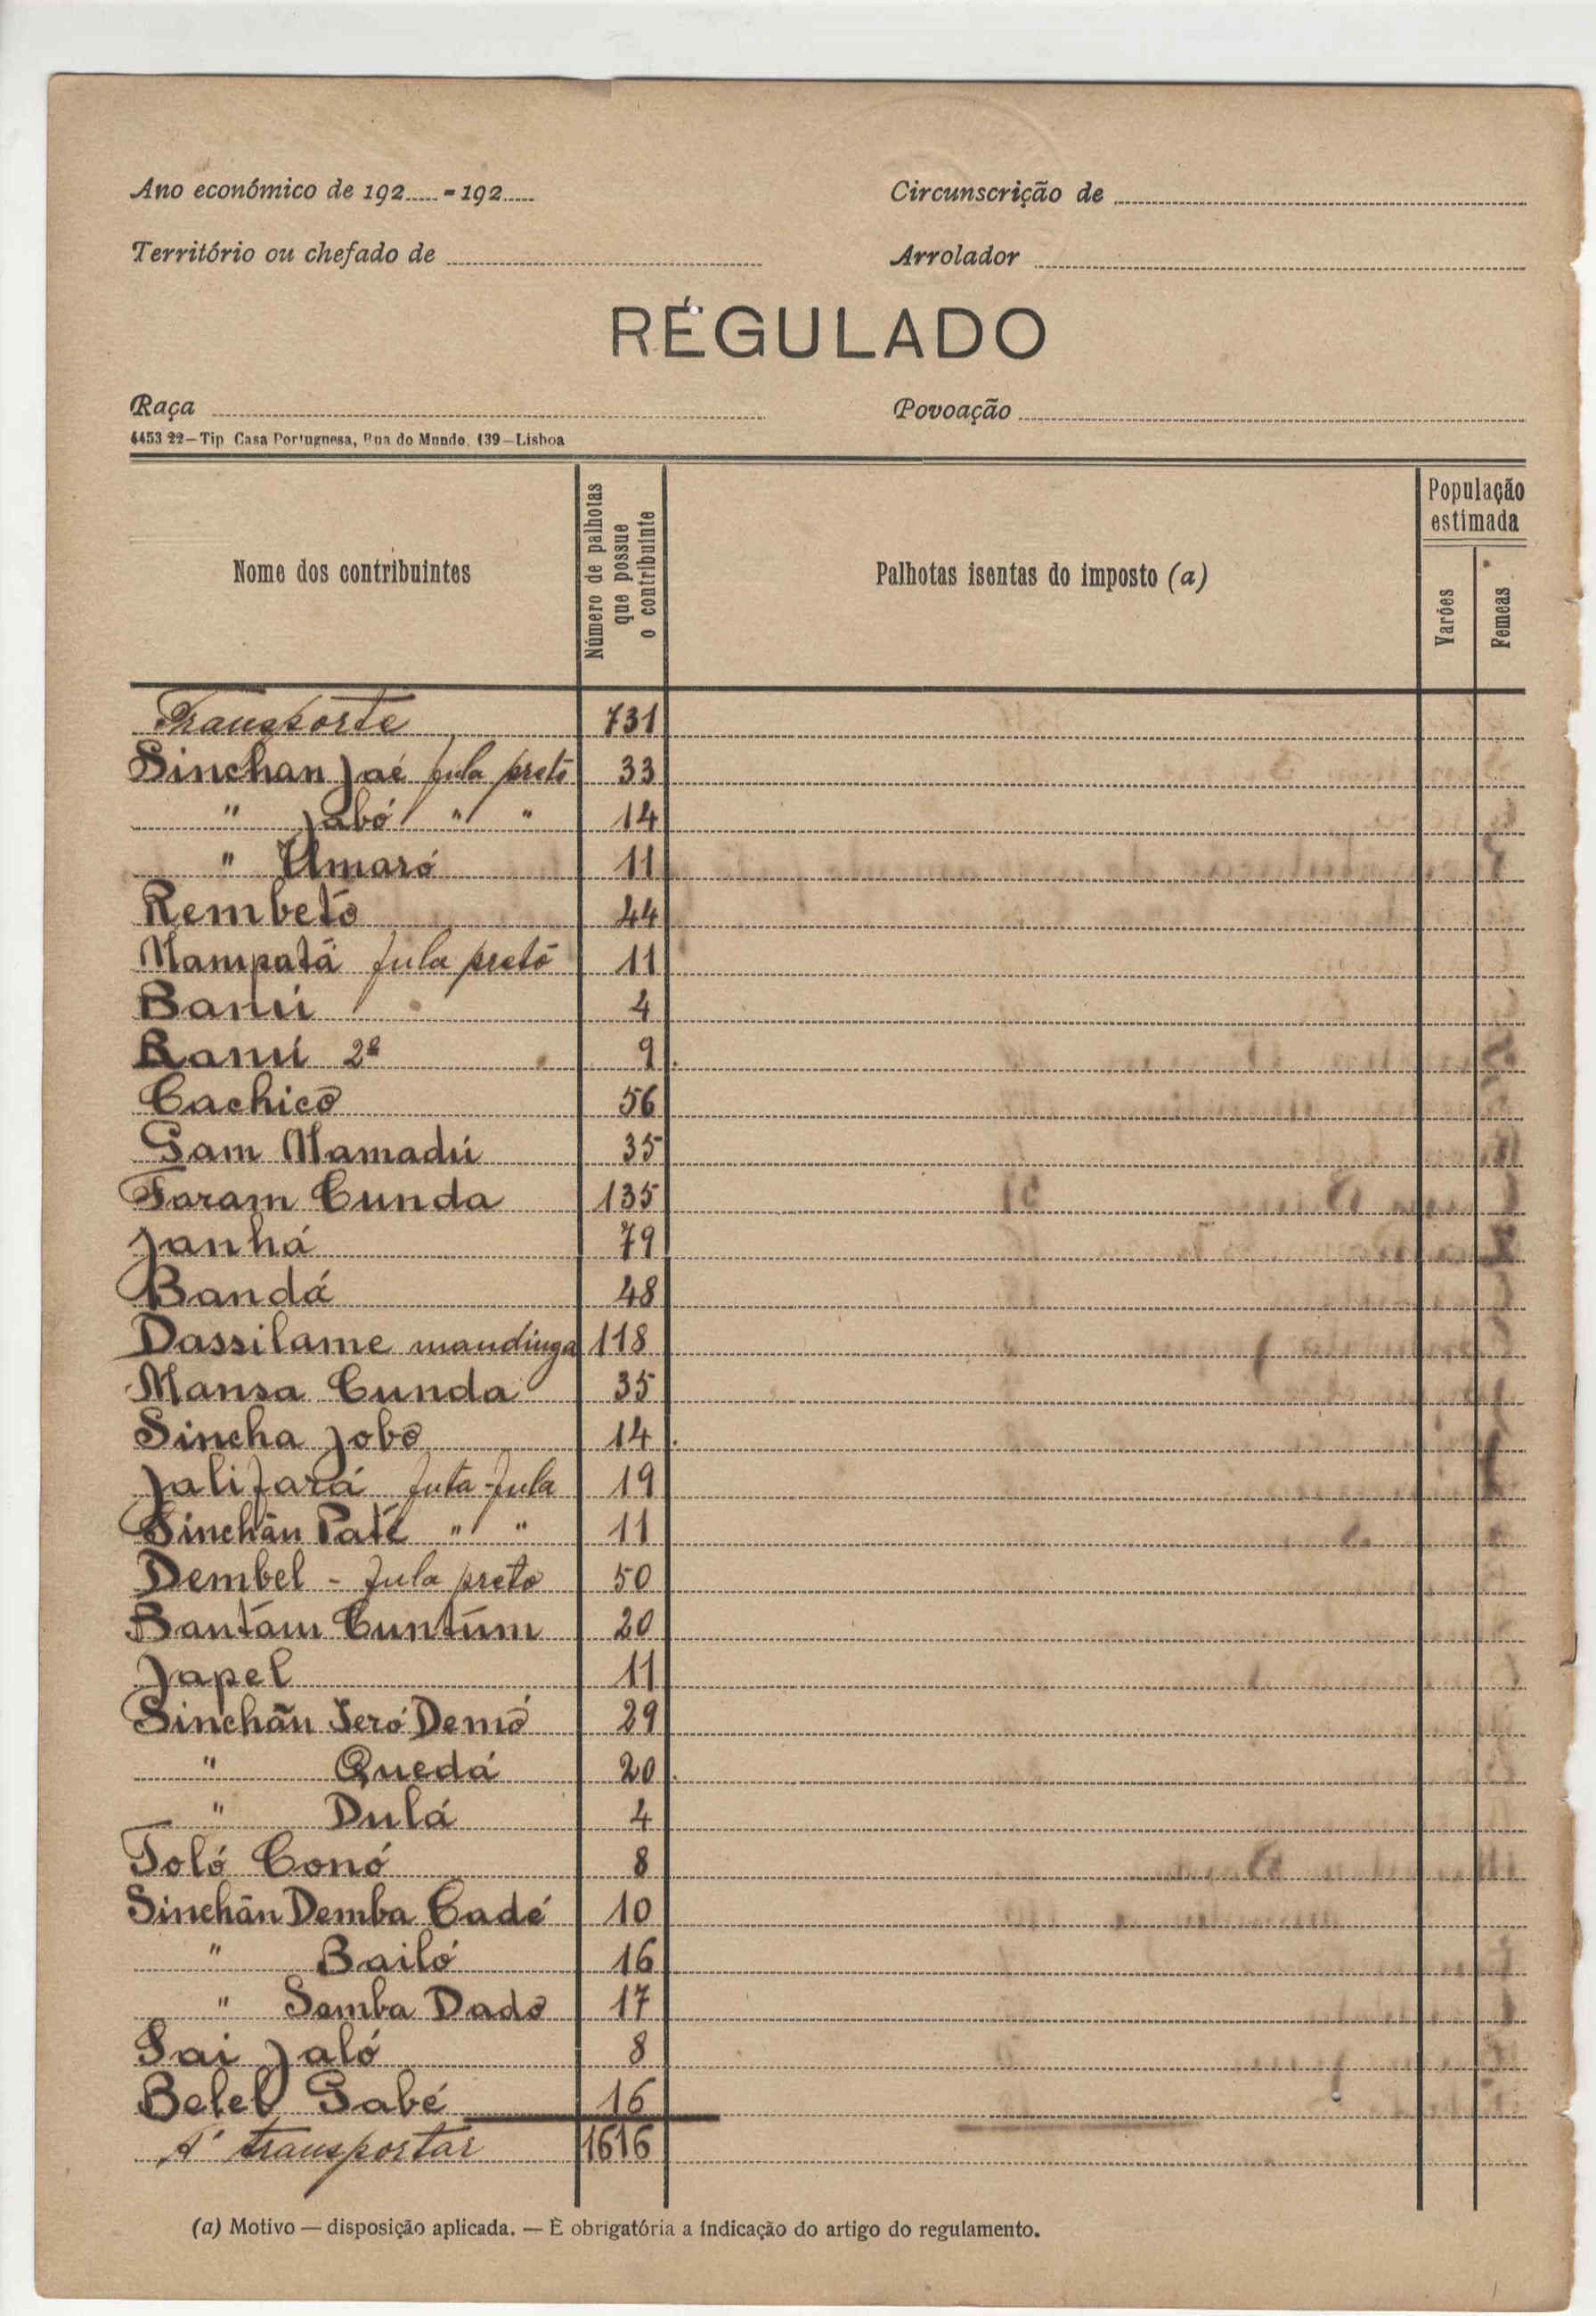 Ano económico de 192..... - 192.....
Circunscrição de
Território ou chefado de
Arrolador
RÉGULADO
Raça
Povoação
4453 22—Tip Casa Portuguesa, Rua do Mundo, 139—Lisboa
Nome dos contribuintes
Número de palhotas que possue o contribuinte
Palhotas isentas do imposto (a)
População estimada
Varões
Femeas
Transporte 731
Sinchan Jaé fula preto 33
" Jabó " " 14
" Umaró 11
Rembetó 44
Mampatá fula preto 11
Banú 4
Banú 2º 9
Cachicó 56
Gam Mamadú 35
Faram Cunda 135
Janhá 79
Bandá 48
Dassilame mandinga 118
Mansa Cunda 35
Sincha Jobó 14
Jalifará futa-fula 19
Sinchãn Paté " " 11
Dembel - fula preto 50
Bantám Cuntúm 20
Japel 11
Sinchãn Seró Demó 29
" Quedá 20
" Dulá 4
Toló Conó 8
Sinchãn Demba Cadé 10
" Bailó 16
" Samba Dadó 17
Sai Jaló 8
Belel Gabé 16
A' transportar 1616
(a) Motivo — disposição aplicada. — È obrigatória a indicação do artigo do regulamento.